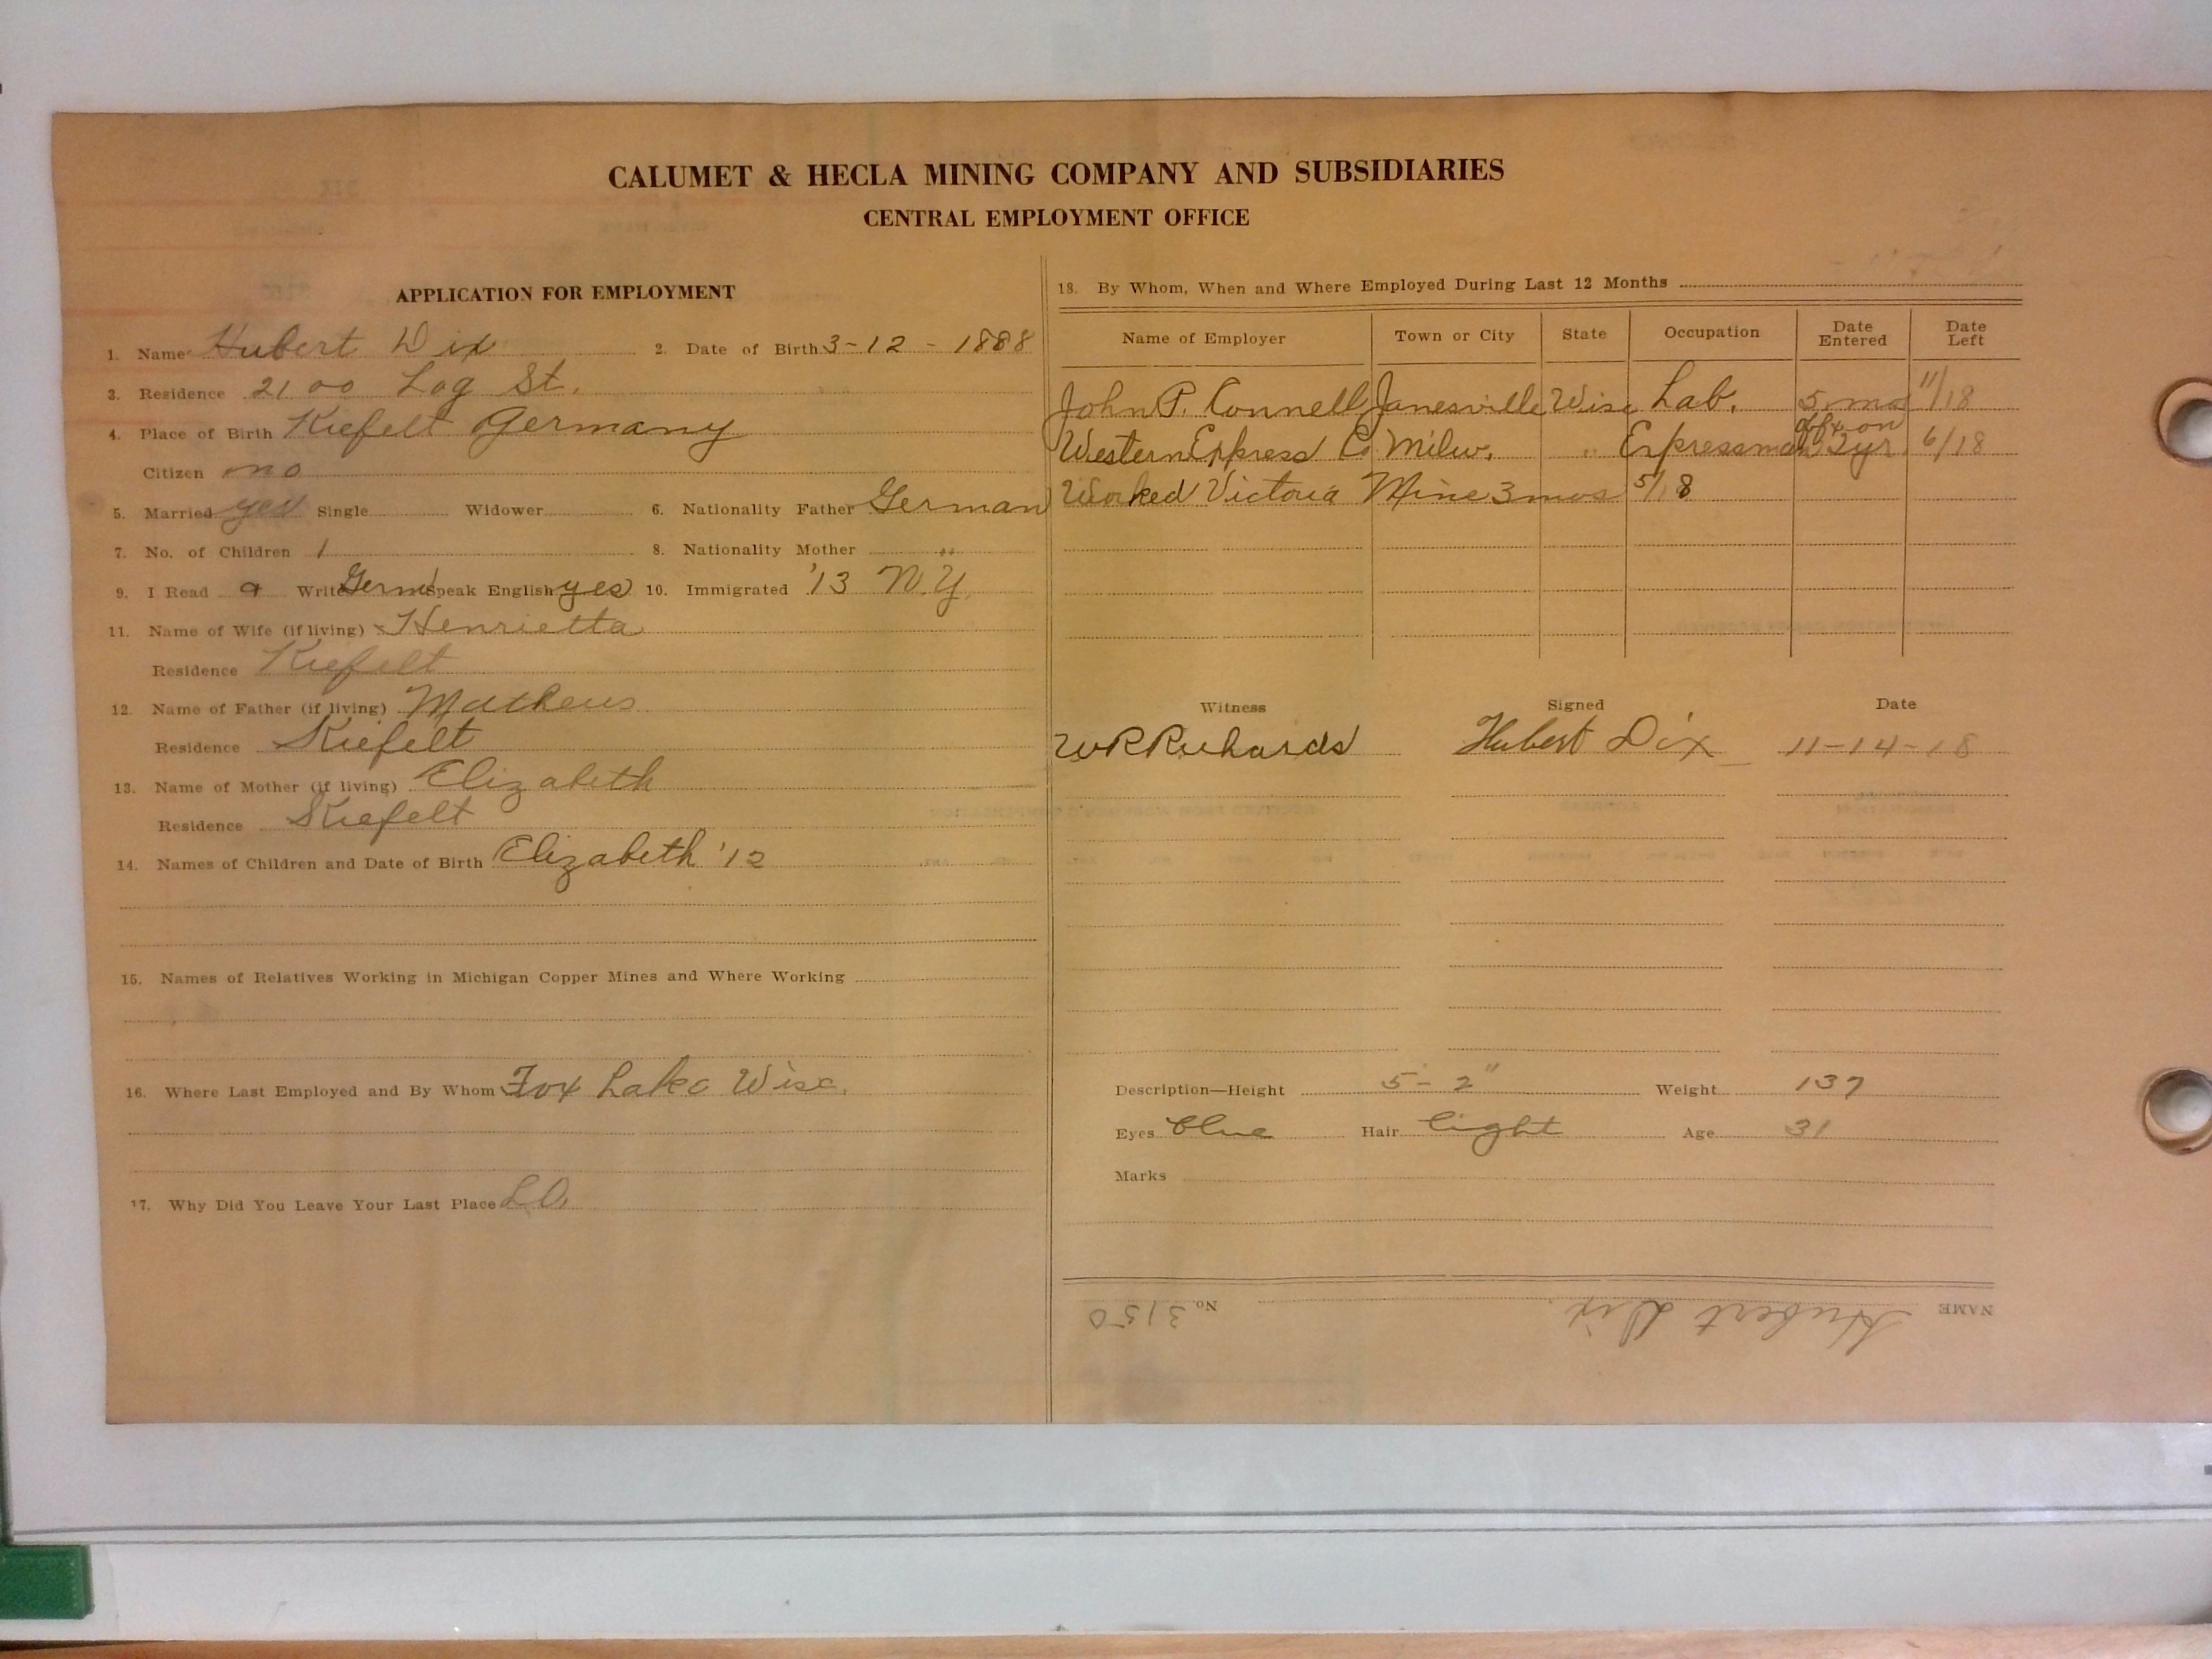 CALUMET & HECLA MINING COMPANY AND SUBSIDIARIES
CENTRAL EMPLOYMENT OFFICE
APPLICATION FOR EMPLOYMENT
1. Name Hubert Dix 2. Date of Birth 3-12-1888
3. Residence 2100 Log St.
4. Place of Birth Kiefelt Germany
Citizen no
5. Married yes Single Widower 6. Nationality Father German
7. No. of Children 1 8. Nationality Mother "
9. I Read & Write Germ Speak English yes 10. Immigrated '13 N.Y.
11. Name of Wife (if living) Henrietta
Residence Kiefelt
12. Name of Father (if living) Matheus
Residence Kiefelt
13. Name of Mother (if living) Elizabeth
Residence Kiefelt
14. Names of Children and Date of Birth Elizabeth '12
15. Names of Relatives Working in Michigan Copper Mines and Where Working
16. Where Last Employed and By Whom Fox Lake Wisc.
17. Why Did You Leave Your Last Place L.O.
18. By Whom, When and Where Employed During Last 12 Months
Name of Employer Town or City State Occupation Date Entered Date Left
John P. Connell Janesville Wisc Lab. 5 mos 11/18
Western Express Co Milw. " Expressman off & on 2 yr. 6/18
Worked Victoria Mine 3 mos 5/18
Witness Signed Date
WR Richards Hubert Dix 11-14-18
Description—Height 5-2" Weight 137
Eyes blue Hair light Age 31
Marks
NAME Hubert Dix. No. 3150